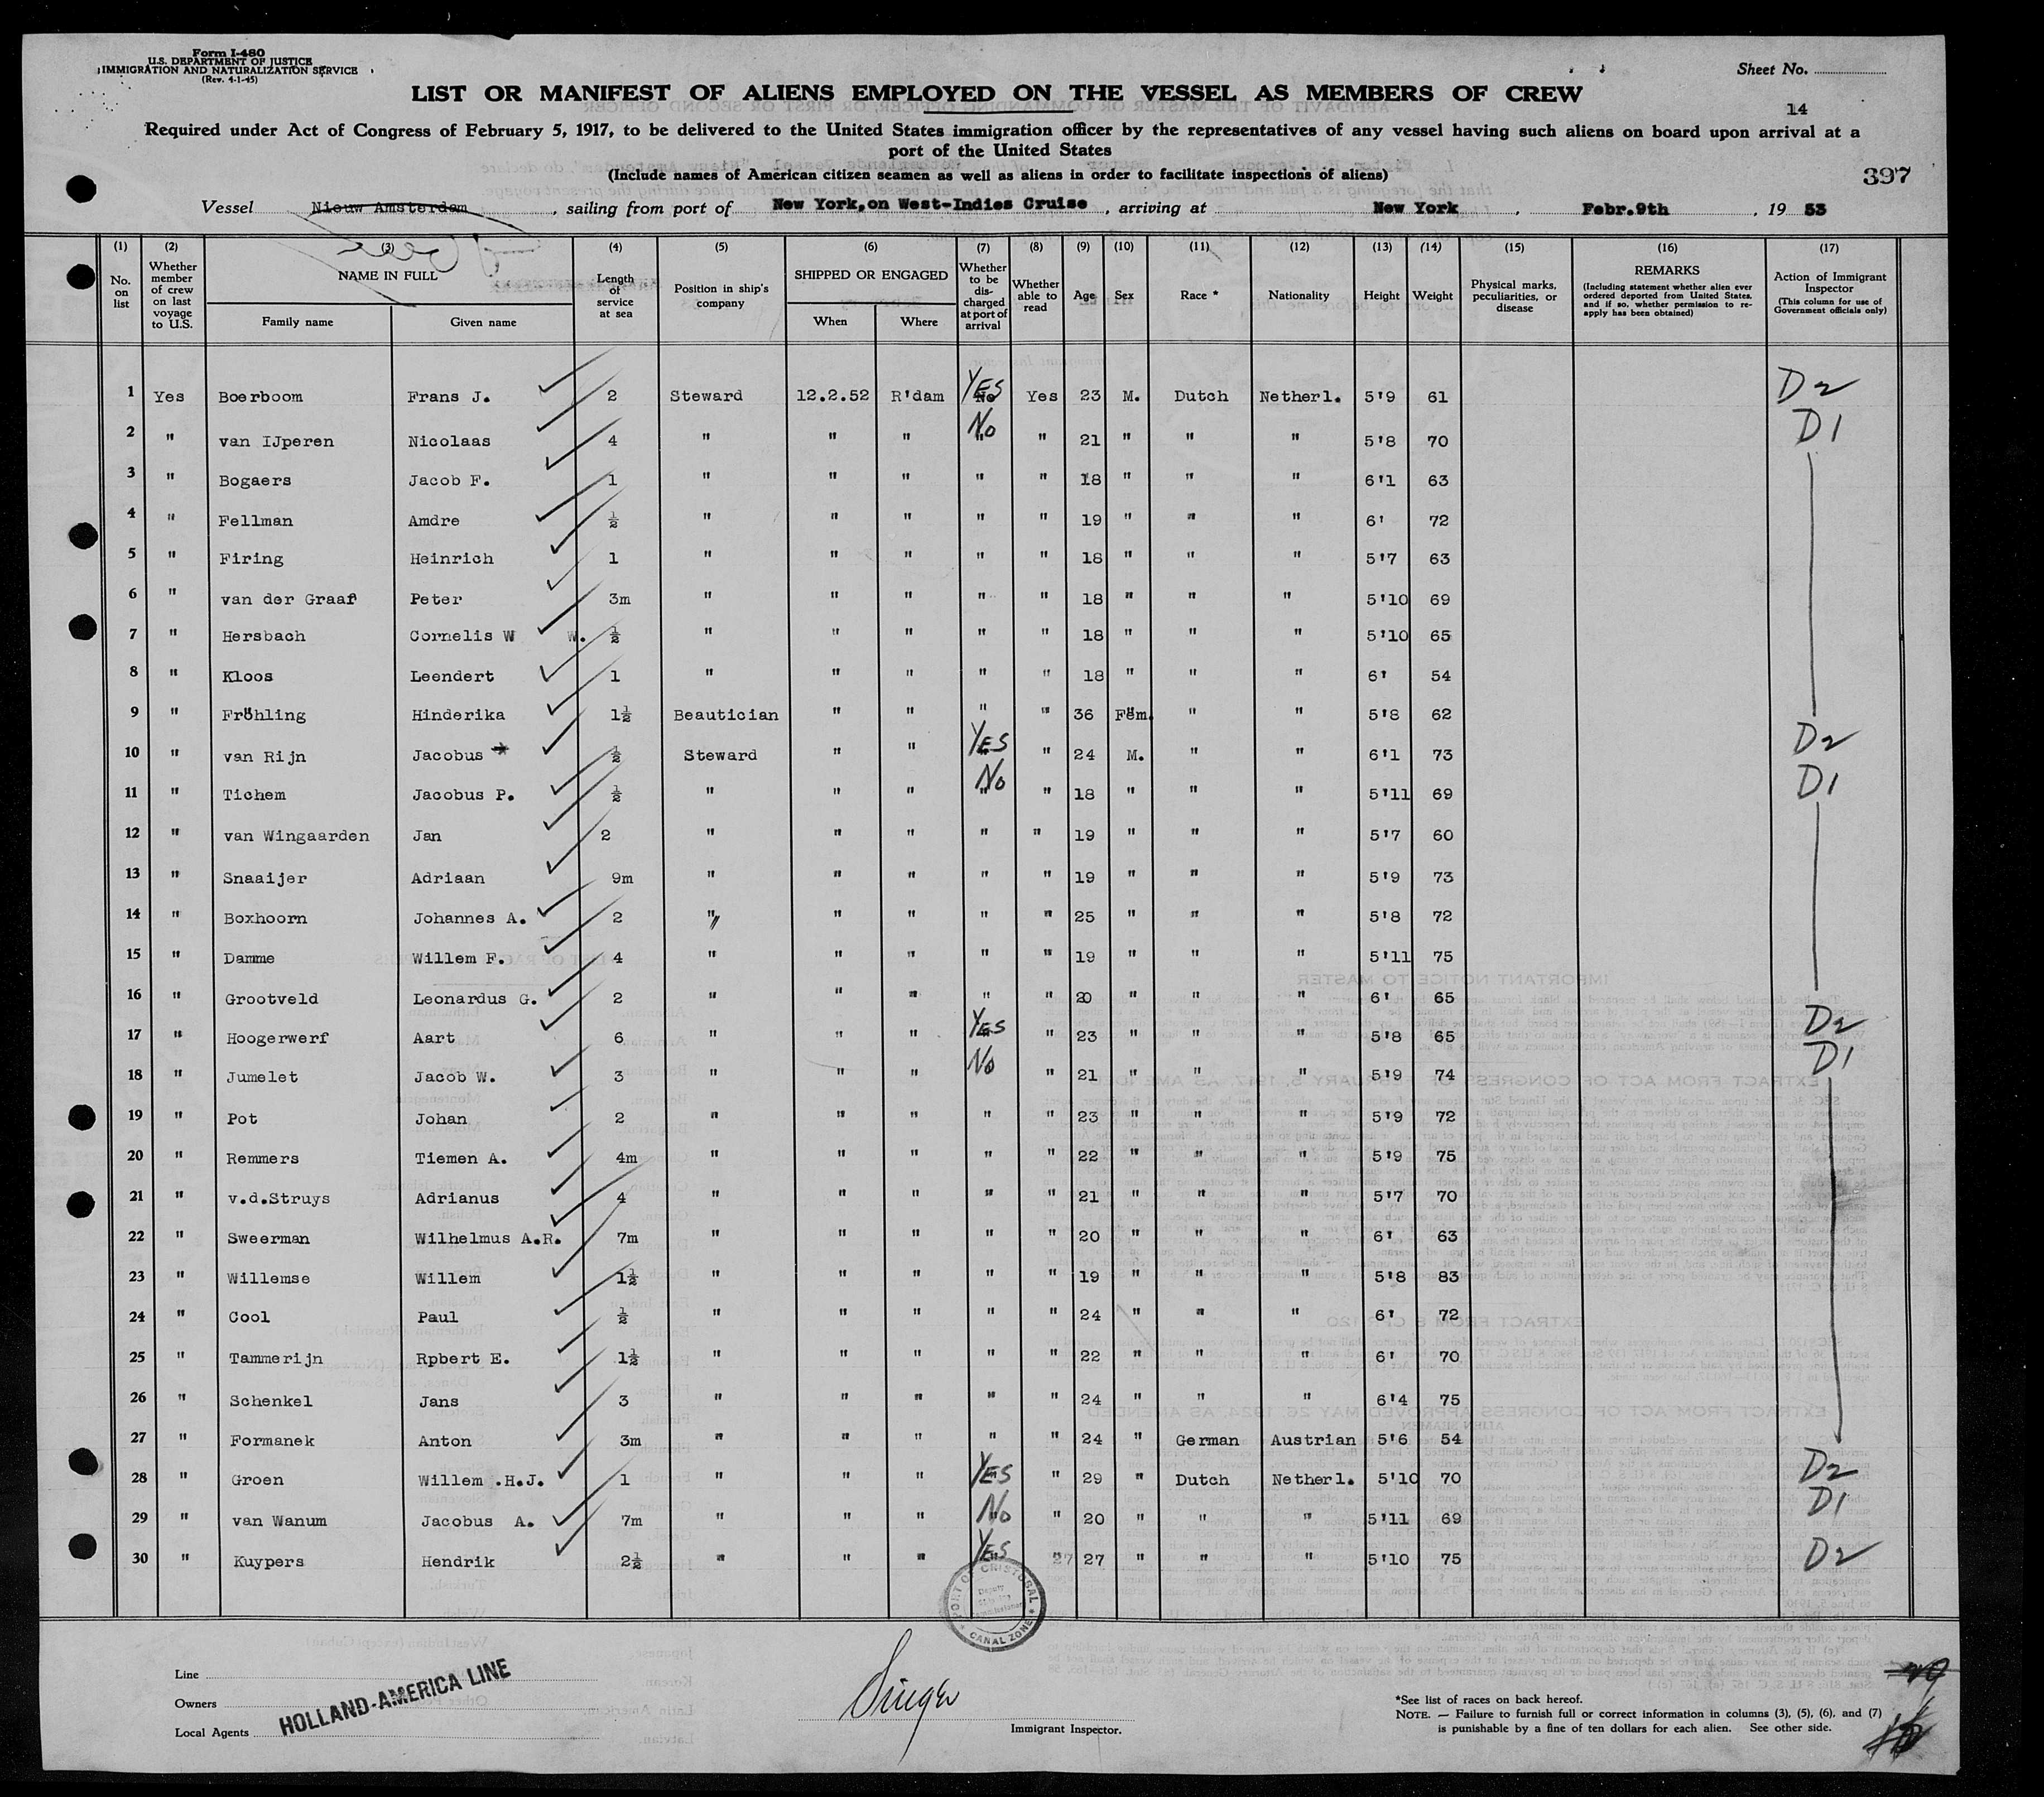 Form I-480
U.S. DEPARTMENT OF JUSTICE
IMMIGRATION AND NATURALIZATION SERVICE
(Rev. 4-1-45)
Sheet No.
14
LIST OR MANIFEST OF ALIENS EMPLOYED ON THE VESSEL AS MEMBERS OF CREW
Required under Act of Congress of February 5, 1917, to be delivered to the United States immigration officer by the representatives of any vessel having such aliens on board upon arrival at a
port of the United States
(Include names of American citizen seamen as well as aliens in order to facilitate inspections of aliens)
397
Vessel Nieuw Amsterdam, sailing from port of New York, on West-Indies Cruise, arriving at New York, Febr.9th, 19 53
(1) (2) (3) (4) (5) (6) (7) (8) (9) (10) (11) (12) (13) (14) (15) (16) (17)
No. on list
Whether member of crew on last voyage to U.S.
NAME IN FULL
Family name
Given name
Length of service at sea
Position in ship's company
SHIPPED OR ENGAGED
When
Where
Whether to be discharged at port of arrival
Whether able to read
Age
Sex
Race *
Nationality
Height
Weight
Physical marks, peculiarities, or disease
REMARKS
(Including statement whether alien ever ordered deported from United States, and if so, whether permission to re-apply has been obtained)
Action of Immigrant Inspector
(This column for use of Government officials only)
1 Yes Boerboom Frans J. 2 Steward 12.2.52 R'dam YES No Yes 23 M. Dutch Netherl. 5'9 61 D2
2 " van IJperen Nicolaas 4 " " " No " " 21 " " " 5'8 70 D1
3 " Bogaers Jacob F. 1 " " " " " 18 " " " 6'1 63
4 " Fellman Amdre ½ " " " " " 19 " " " 6' 72
5 " Firing Heinrich 1 " " " " " 18 " " " 5'7 63
6 " van der Graaf Peter 3m " " " " " 18 " " " 5'10 69
7 " Hersbach Cornelis W W. ½ " " " " " 18 " " " 5'10 65
8 " Kloos Leendert 1 " " " " " 18 " " " 6' 54
9 " Fröhling Hinderika 1½ Beautician " " " " 36 Fem. " " 5'8 62
10 " van Rijn Jacobus ½ Steward " " YES " 24 M. " " 6'1 73 D2
11 " Tichem Jacobus P. ½ " " " No " " 18 " " " 5'11 69 D1
12 " van Wingaarden Jan 2 " " " " " 19 " " " 5'7 60
13 " Snaaijer Adriaan 9m " " " " " 19 " " " 5'9 73
14 " Boxhoorn Johannes A. 2 " " " " " 25 " " " 5'8 72
15 " Damme Willem F. 4 " " " " " 19 " " " 5'11 75
16 " Grootveld Leonardus G. 2 " " " " " 20 " " " 6' 65
17 " Hoogerwerf Aart 6 " " " YES " 23 " " " 5'8 65 D2
18 " Jumelet Jacob W. 3 " " " No " 21 " " " 5'9 74 D1
19 " Pot Johan 2 " " " " " 23 " " " 5'9 72
20 " Remmers Tiemen A. 4m " " " " " 22 " " " 5'9 75
21 " v.d.Struys Adrianus 4 " " " " " 21 " " " 5'7 70
22 " Sweerman Wilhelmus A.R. 7m " " " " " 20 " " " 6' 63
23 " Willemse Willem 1½ " " " " " 19 " " " 5'8 83
24 " Cool Paul ½ " " " " " 24 " " " 6' 72
25 " Tammerijn Rpbert E. 1½ " " " " " 22 " " " 6' 70
26 " Schenkel Jans 3 " " " " " 24 " " " 6'4 75
27 " Formanek Anton 3m " " " " " 24 " German Austrian 5'6 54
28 " Groen Willem .H.J. 1 " " " YES " 29 " Dutch Netherl. 5'10 70 D2
29 " van Wanum Jacobus A. 7m " " " No " 20 " " " 5'11 69 D1
30 " Kuypers Hendrik 2½ " " " YES " 27 27 " " " 5'10 75 D2
PORT OF CRISTOBAL
Deputy
CANAL ZONE
Line
Owners
Local Agents
HOLLAND-AMERICA LINE
Singer
Immigrant Inspector.
*See list of races on back hereof.
NOTE. — Failure to furnish full or correct information in columns (3), (5), (6), and (7)
is punishable by a fine of ten dollars for each alien. See other side.